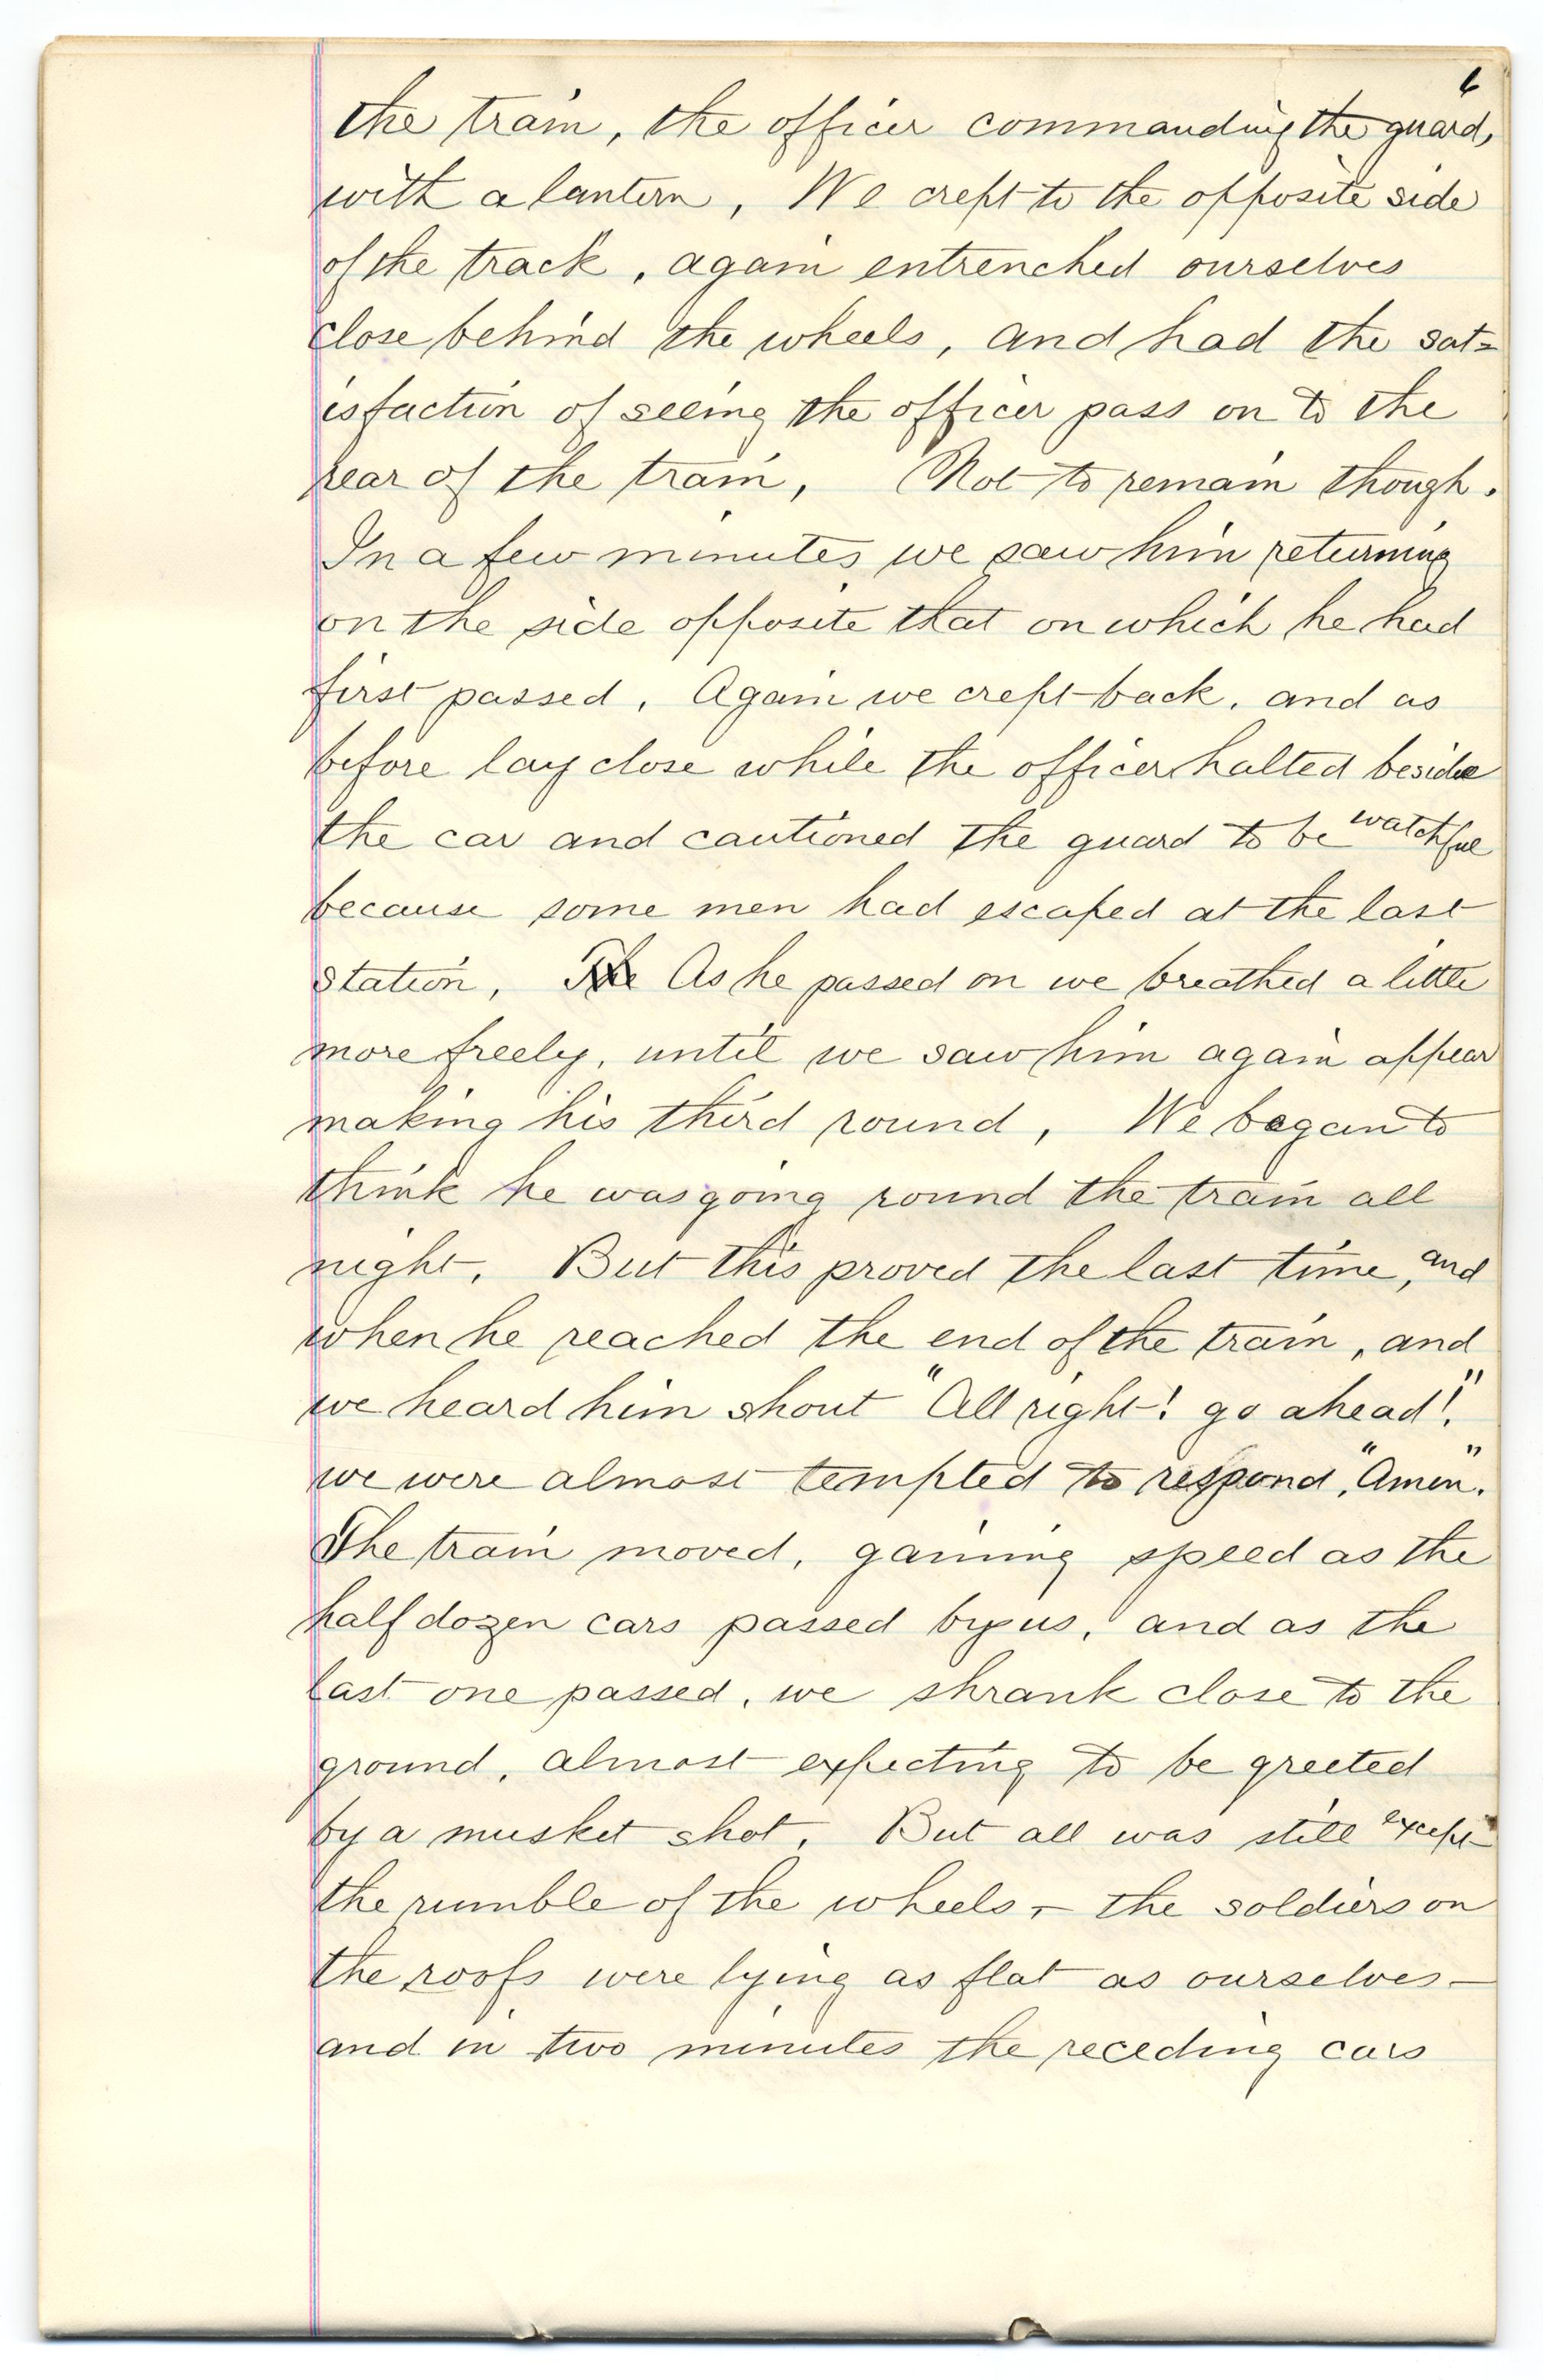 6
the train, the officer commanding the guard,
with a lantern, We crept to the opposite side
of the track, again entrenched ourselves
close behind the wheels, and had the sat=
isfaction of seeing the officer pass on to the
rear of the train, Not to remain though.
In a few minutes we saw him returning
on the side opposite that on which he had
first passed, Again we crept back, and as
before lay close while the officer halted beside
the car and cautioned the guard to be watchful
because some men had escaped at the last
station, The As he passed on we breathed a little
more freely, until we saw him again appear
making his third round, We began to
think he was going round the train all
night. But this proved the last time, and
when he reached the end of the train, and
we heard him shout "All right! go ahead!",
we were almost tempted to respond, "Amen".
The train moved, gaining speed as the
half dozen cars passed by us, and as the
last one passed, we shrank close to the
ground, almost expecting to be greeted
by a musket shot. But all was still except
the rumble of the wheels, – the soldiers on
the roofs were lying as flat as ourselves –
and in two minutes the receding cars